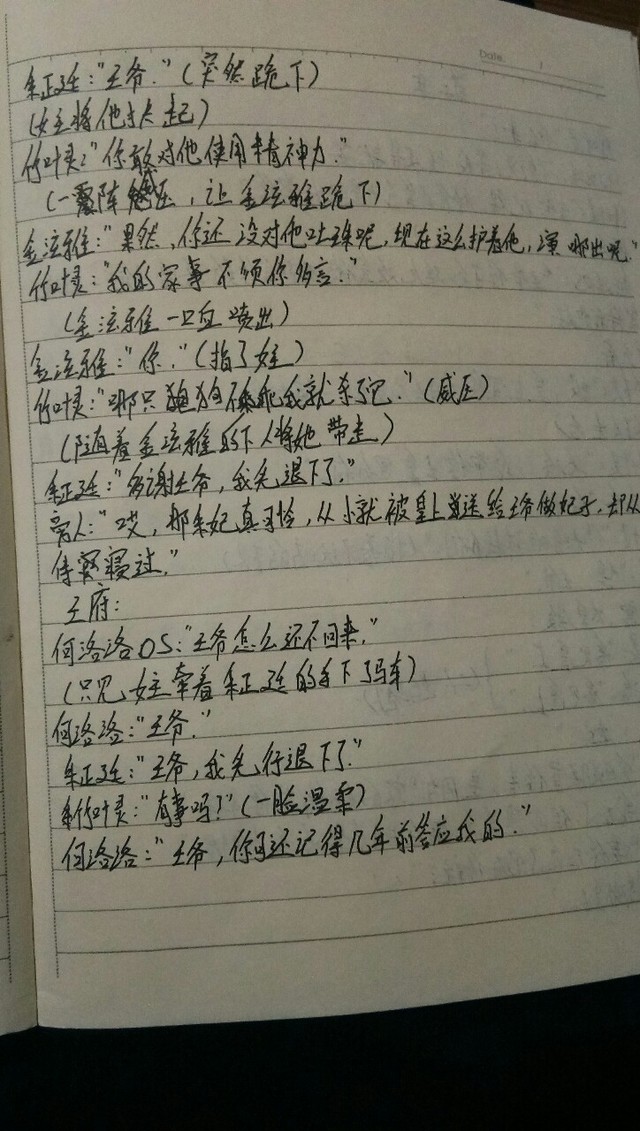 Date.
朱正廷："王爷。"（突然跪下）
（女主将他扶起）
竹叶灵："你敢对他使用精神力。"
（一阵威压，让金泫雅跪下）
金泫雅："果然，你还没对他吐呢，现在这么护着他，演哪出呢。"
竹叶灵："我的家事不须你多言。"
（金泫雅一口血喷出）
金泫雅："你。"（指了女主）
竹叶灵："哪只狗不乖我就杀了它。"（威压）
（随着金泫雅的下人将她带走）
朱正廷："多谢王爷，我先退下了。"
旁人："哎，那朱妃真可怜，从小就被皇上送给王爷做妃子，却从
侍寝过。"
王府：
何洛洛OS："王爷怎么还不回来。"
（只见女主牵着朱正廷的手下了马车）
何洛洛："王爷。"
朱正廷："王爷，我先行退下了。"
竹叶灵："有事吗？"（一脸温柔）
何洛洛："王爷，你可还记得几年前答应我的。"